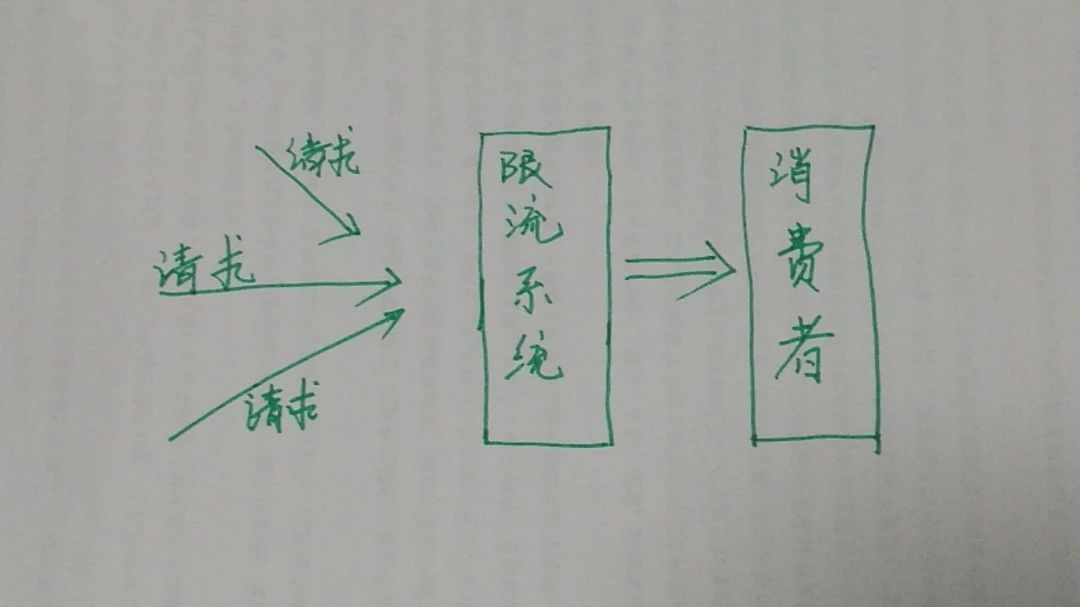 请求
请求
请求
限流系统
消费者